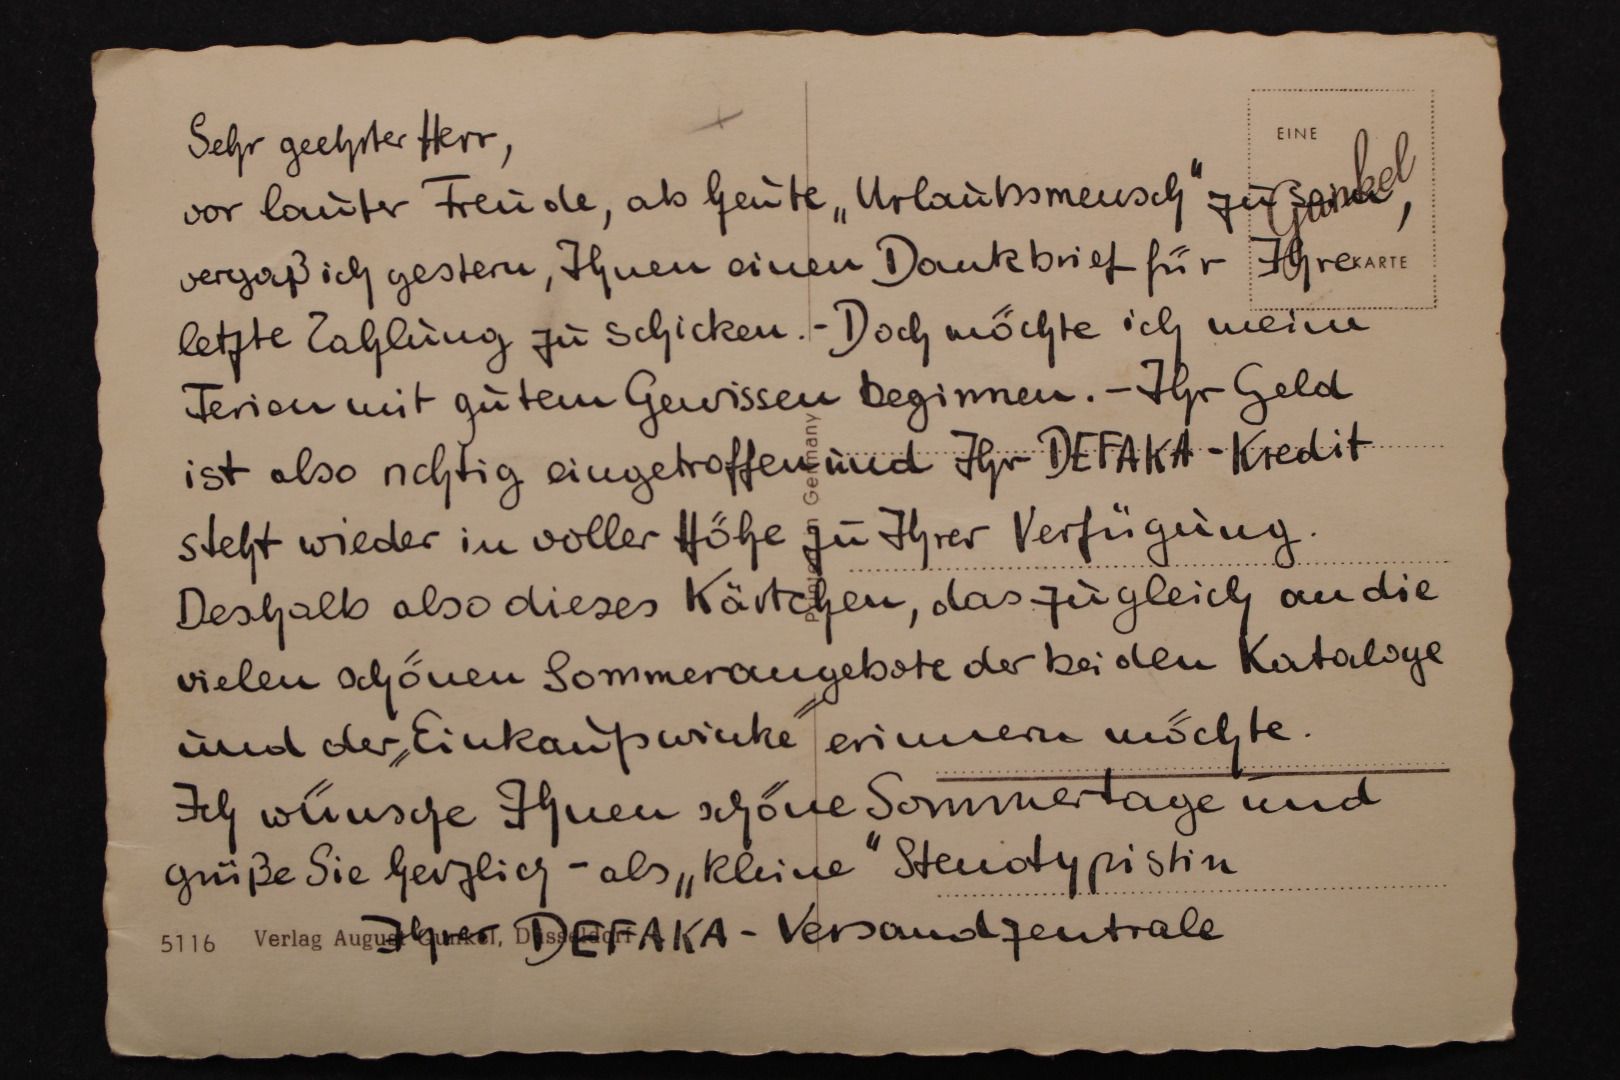 Sehr geehrter Herr,
vor lauter Freude, ab heute „Urlaubsmensch" zu sein,
vergaß ich gestern, Ihnen einen Dankbrief für Ihre
letzte Zahlung zu schicken. - Doch möchte ich meine
Ferien mit gutem Gewissen beginnen. - Ihr Geld
ist also richtig eingetroffen und Ihr DEFAKA - Kredit
steht wieder in voller Höhe zu Ihrer Verfügung.
Deshalb also dieses Kärtchen, das zugleich an die
vielen schönen Sommerangebote der beiden Kataloge
und der „Einkaufswinke" erinnern möchte.
Ich wünsche Ihnen schöne Sommertage und
grüße Sie herzlich - als „kleine" Stenotypistin
Ihrer DEFAKA - Versandzentrale
EINE
Gunkel
KARTE
Printed in Germany
5116 Verlag August Gunkel, Düsseldorf